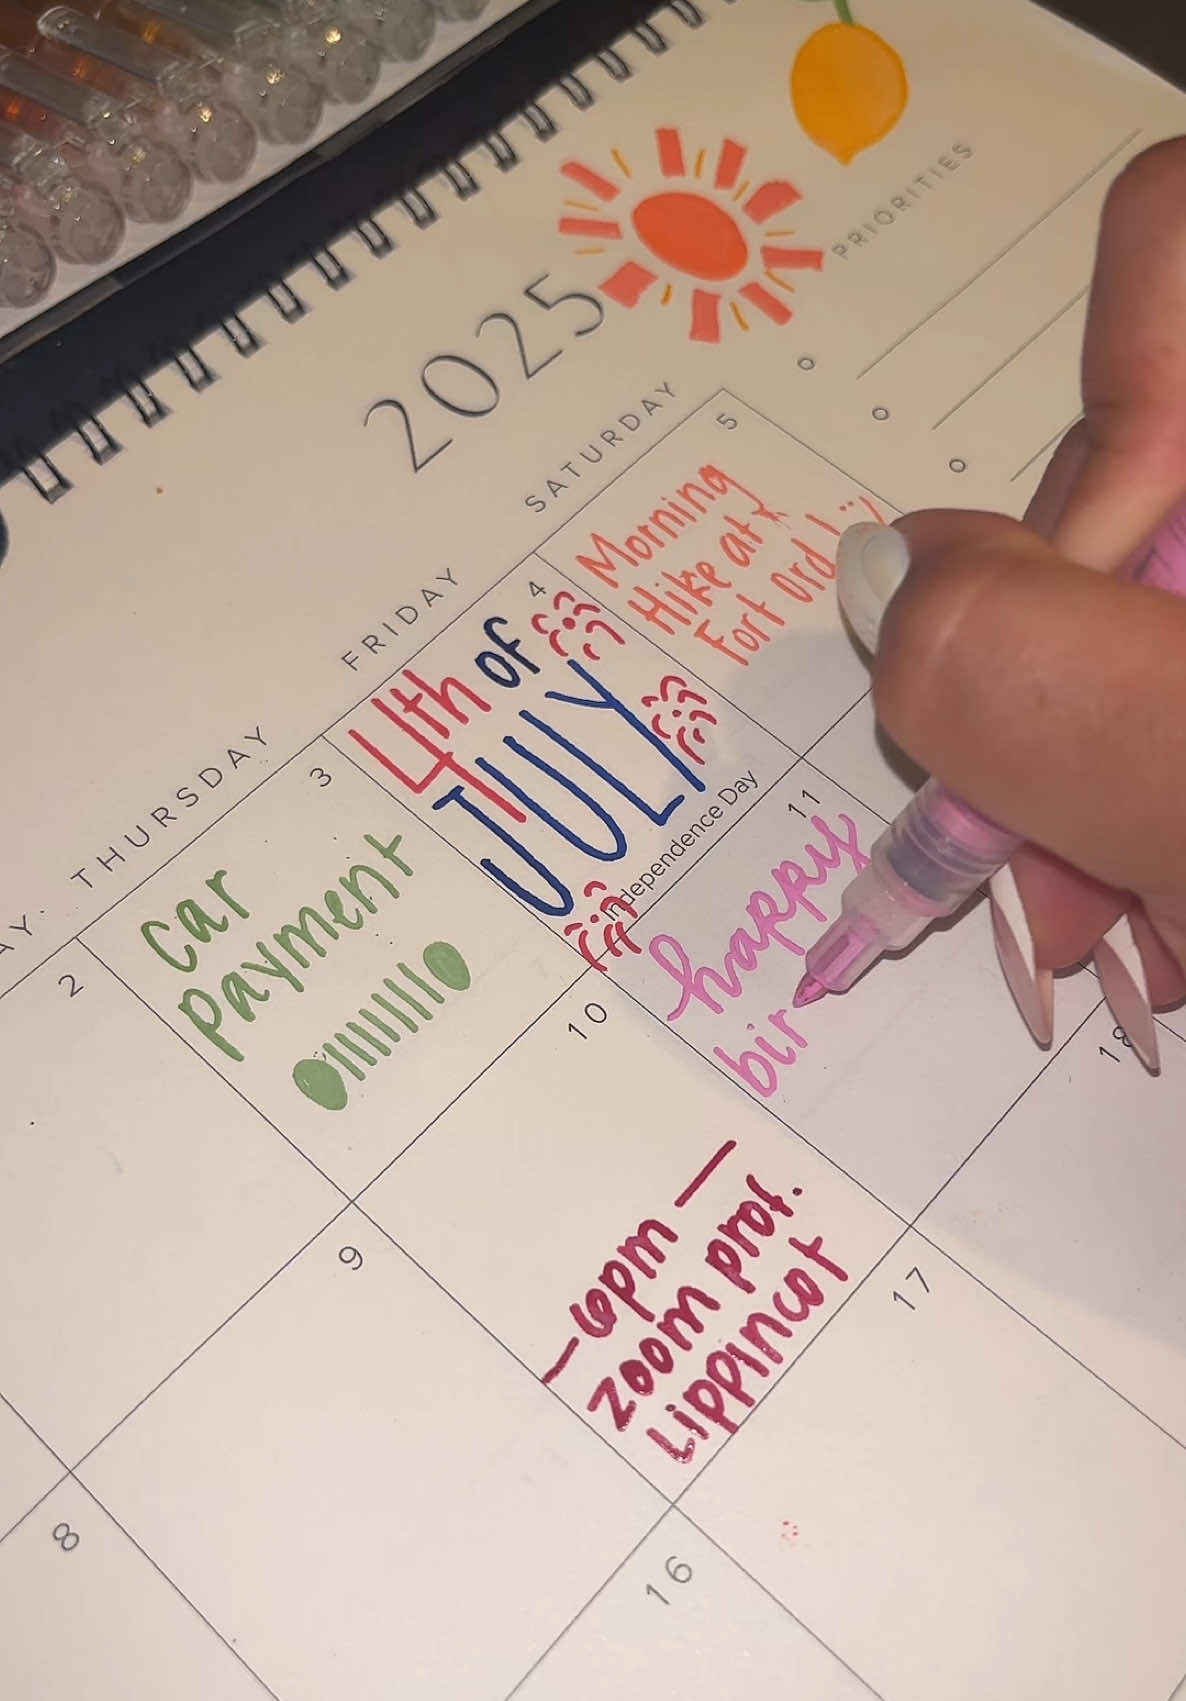 2025
PRIORITIES
THURSDAY
FRIDAY
SATURDAY
2
3
car
payment
4
4th of
JULY
Independence Day
5
Morning
Hike at
Fort Ord!
8
9
10
6pm
zoom prof.
Lippincot
11
happy
bir
16
17
18